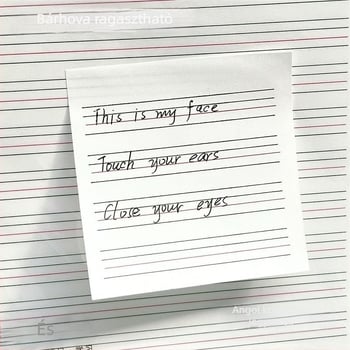 Bárhova ragasztható
This is my face
Touch your ears
Close your eyes
És
Angol